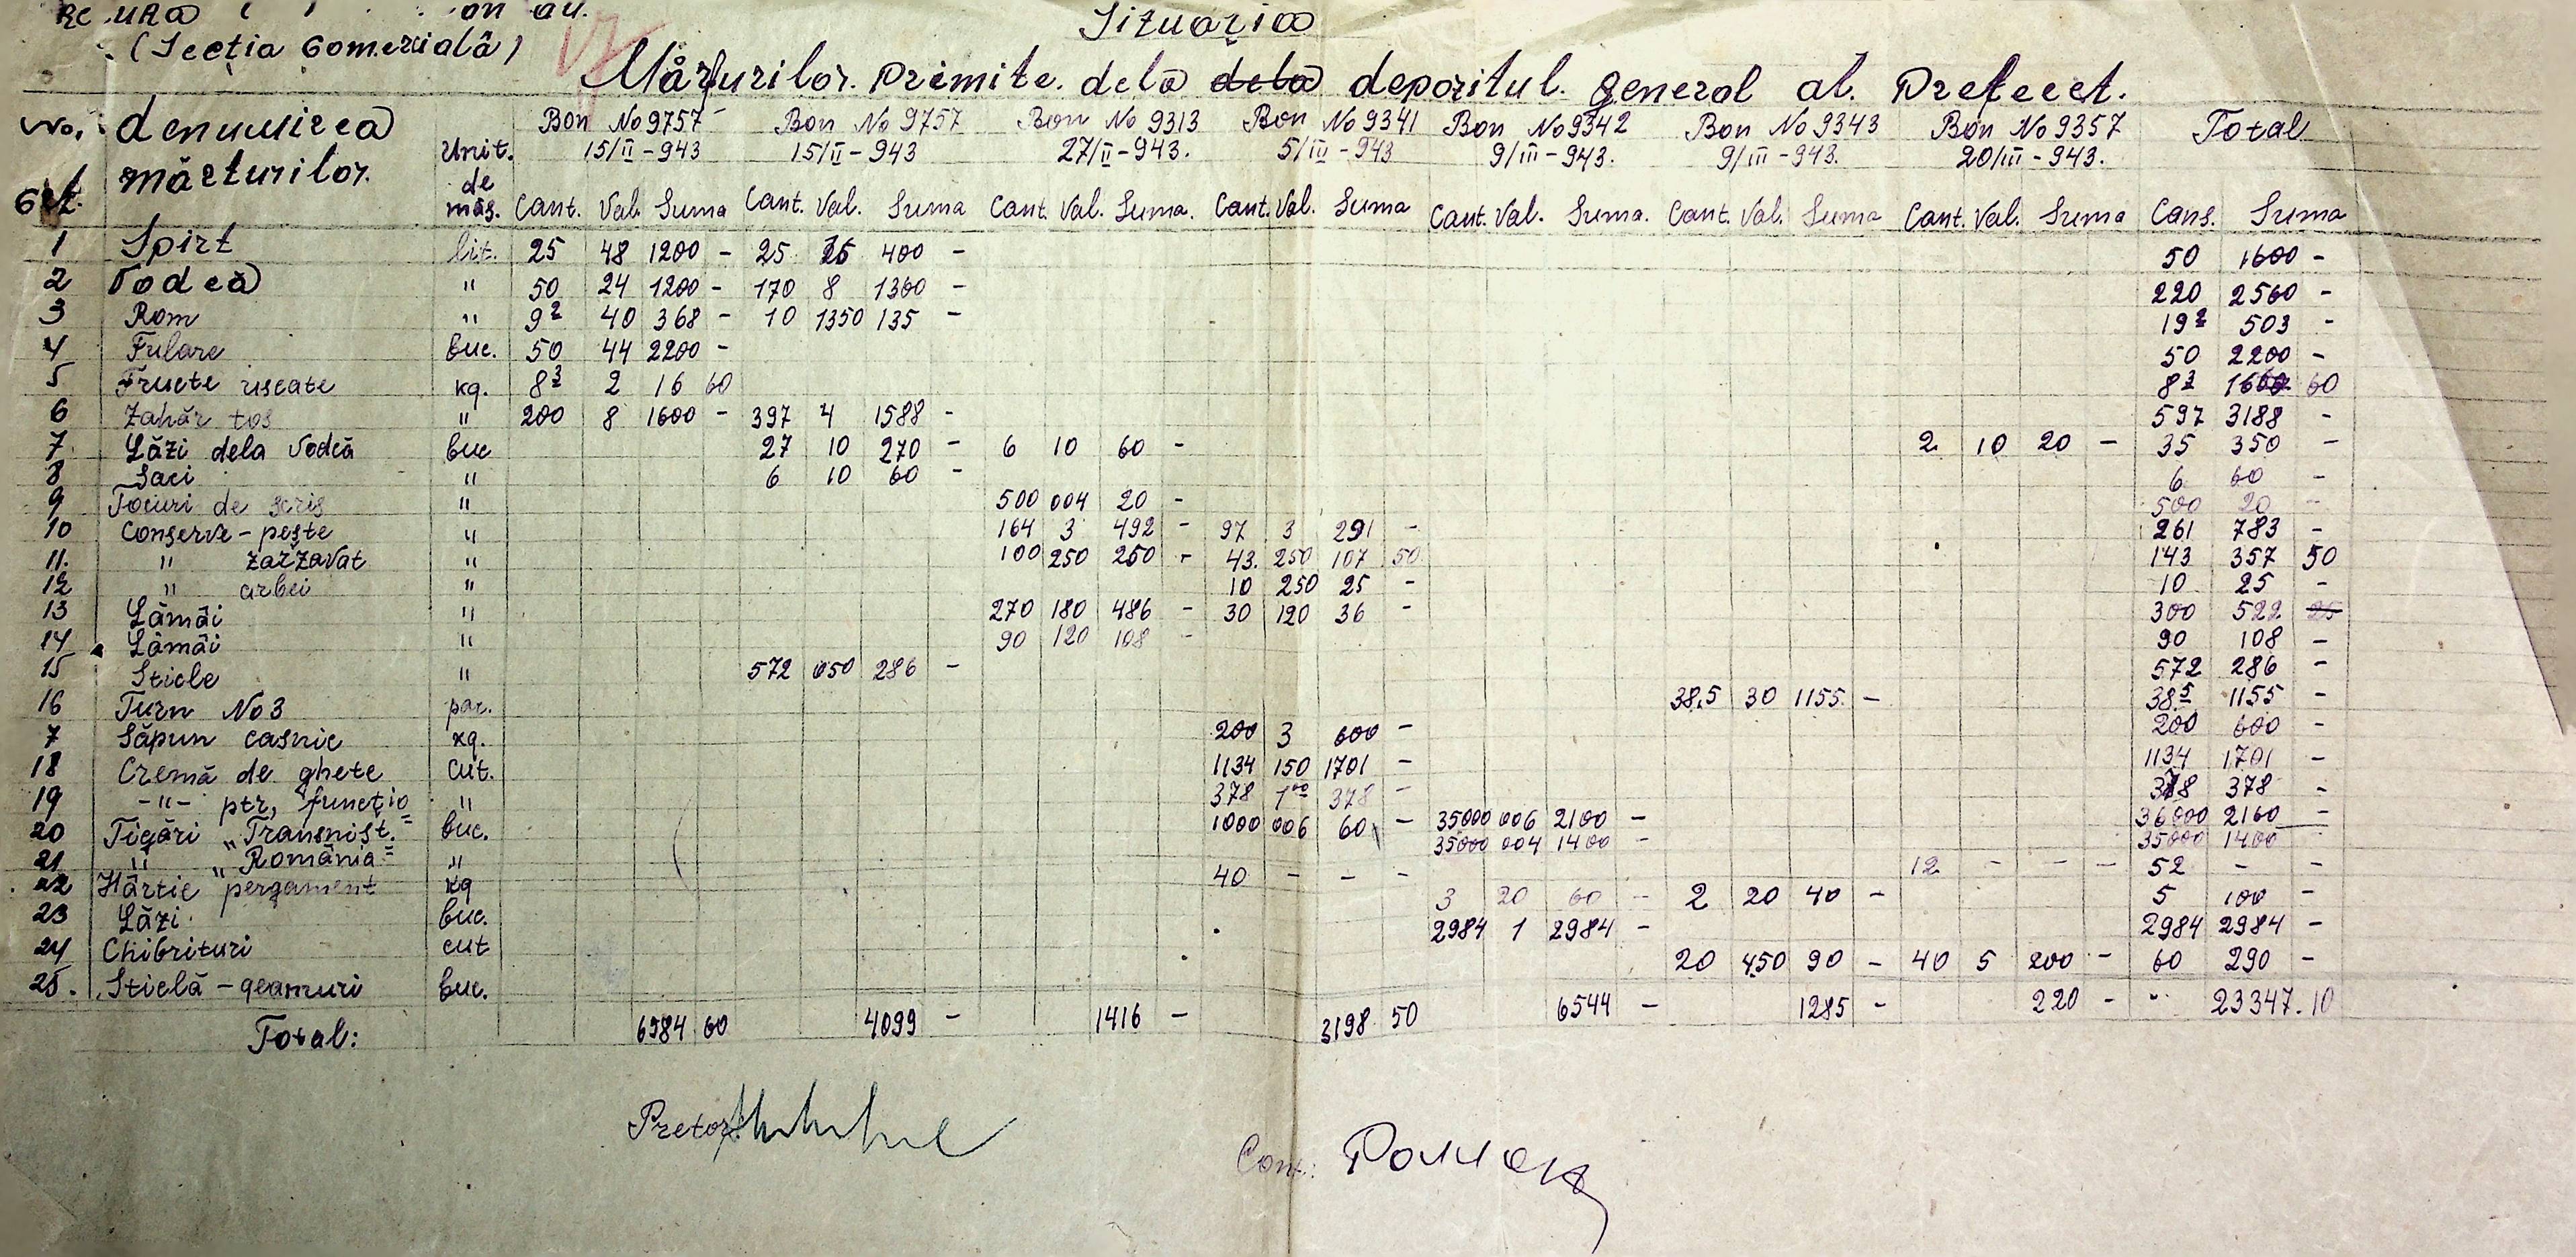 (Secția Comercială)
Situația
Mărfurilor primite dela dela depozitul general al Prefect.
No. Crt. denumirea mărfurilor Unit. de măs. Bon No 9757 15/II-943 Bon No 9757 15/II-943 Bon No 9313 27/II-943. Bon No 9341 5/III-943 Bon No 9342 9/III-943. Bon No 9343 9/III-943. Bon No 9357 20/III-943. Total
Cant. Val. Suma Cant. Val. Suma Cant. Val. Suma. Cant. Val. Suma Cant. Val. Suma. Cant. Val. Suma Cant. Val. Suma Cans. Suma
1 Spirt lit. 25 48 1200 - 25 400 - 50 1600 -
2 Vodcă " 50 24 1200 - 170 8 1360 - 220 2560 -
3 Rom " 9² 40 368 - 10 1350 135 - 19² 503 -
4 Fulare buc. 50 44 2200 - 50 2200 -
5 Fructe uscate kg. 8³ 2 16 60 8³ 60
6 Zahăr tos " 200 8 1600 - 397 4 1588 - 597 3188 -
7 Lăzi dela vodcă buc 27 10 270 - 6 10 60 - 2 10 20 - 35 350 -
8 Saci " 6 10 60 - 6 60 -
9 Tocuri de scris " 500 004 20 - 500 20 -
10 Conserve-pește " 164 3 492 - 97 3 291 - 261 783 -
11. " zarzavat " 100 250 250 - 43. 250 107 50 143 357 50
12 " arbei " 10 250 25 - 10 25 -
13 Lămâi " 270 180 486 - 30 120 36 - 300 522 25
14 Lămâi " 90 120 108 - 90 108 -
15 Sticle " 572 050 286 - 572 286 -
16 Turn No 3 par. 38,5 30 1155 - 38⁵ 1155 -
7 Săpun casnic kg. 200 3 600 - 200 600 -
18 Cremă de ghete cut. 1134 150 1701 - 1134 1701 -
19 -"- ptr, funcțio " 378 1⁰⁰ 378 - 378 378 -
20 Țigări „Transnist." buc. 1000 006 60 - 35000 006 2100 - 36000 2160 -
21 " „România" " 35000 004 1400 - 35000 1400
22 Hârtie pergament kg 40 - - - 12 - - - 52 - -
23 Lăzi buc. 3 20 60 - 2 20 40 - 5 100 -
24 Chibrituri cut 2984 1 2984 - 2984 2984 -
25. Sticlă-geamuri buc. 20 4,50 90 - 40 5 200 - 60 290 -
Total: 6584 60 4099 - 1416 - 3198 50 6544 - 1285 - 220 - " 23347.10
Pretor
Cont: